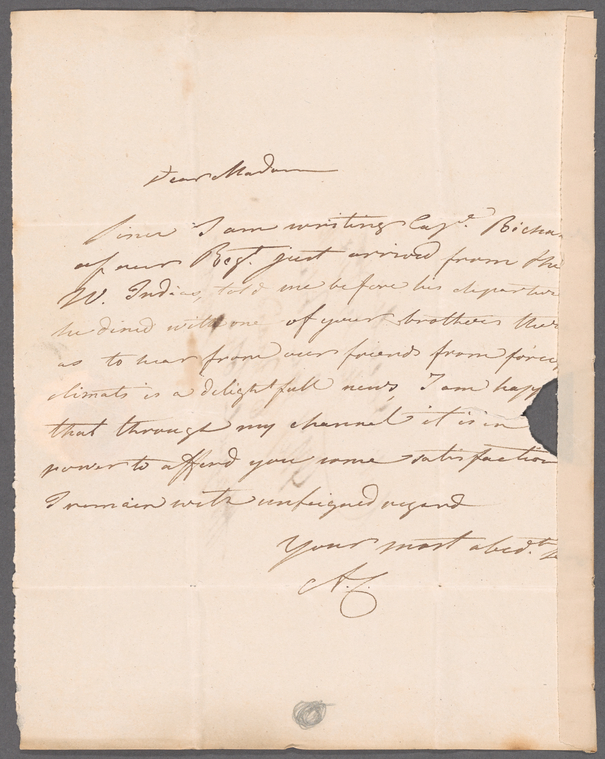 Dear Madam
Since I am writing Capt. Richa
of our Regt. just arrived from the
W. Indias, told me before his departur
he dined with one of your brothers ther
as to hear from our friends from foreig
climats is a delightfull news, I am happ
that through my channel it is in
power to afford you some satisfaction
I remain with unfeigned regard
Your most obedt.
A.C.